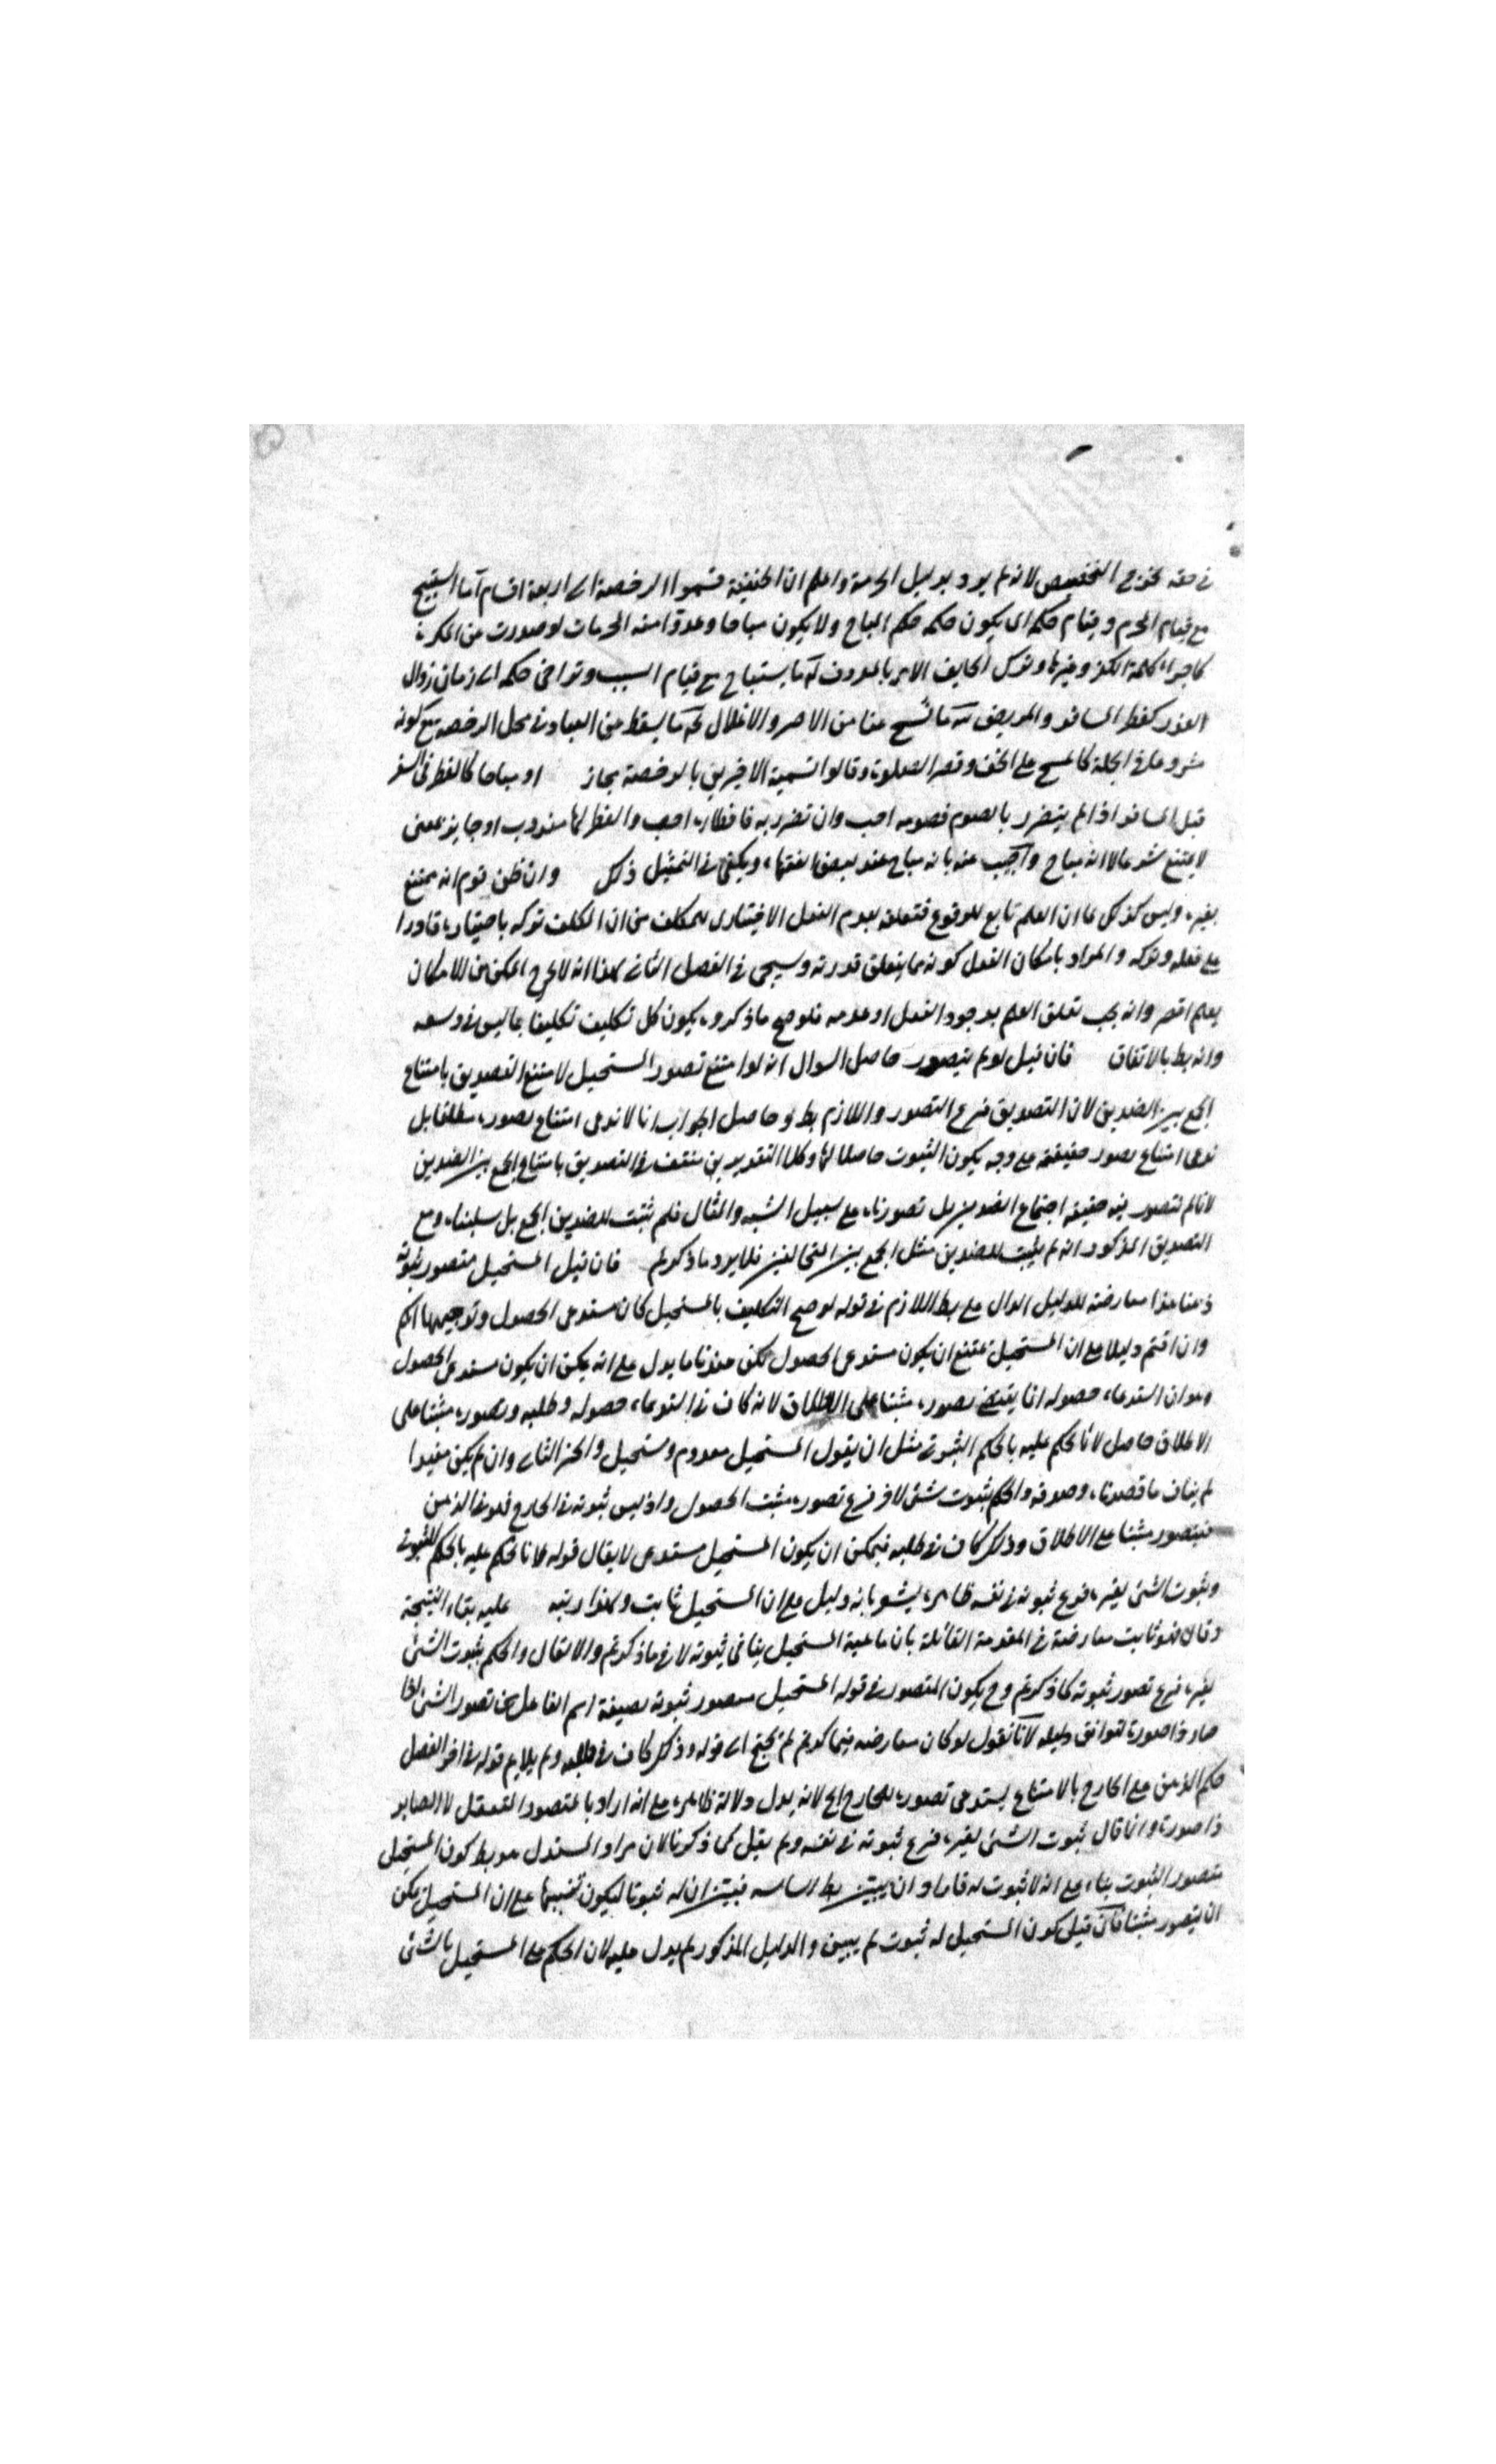 في حقه يخرج التخصيص لانه لم يرد بدليل الحرمة واعلم ان الحنفية قسموا الرخصة الى اربعة اقسام آ ما استبيح
مع قيام المحرم وقيام حكمه اى يكون حكمه حكم المباح ولا يكون مباحا وعدوا منه الحرمات لو صدرت من المكره
كاجراء كلمة الكفر وغيرها وترك الخايف الامر بالمعروف ب ما يستباح مع قيام السبب وتراخى حكمه الى زمان زوال
العذر كفطر المسافر والمريض ج ما نسخ عنا من الاصر والاغلال د ما يسقط من العباد في محل الرخصه مع كونه
مشروعا في الجملة كالمسح على الخف وقصر الصلوة وقالوا تسمية الاخيرين بالرخصة مجاز او مباحا كالفطر في السفر
قيل المسافر اذا لم يتضرر بالصوم فصومه احب وان تضرر به فافطاره احب والفطر اما مندوب او جايز بمعنى
لا يمتنع شرعا لا انه مباح واجيب عنه بانه مباح عند بعض الفقهاء ويكفى في التمثيل ذلك وان ظن قوم انه ممتنع
بغيره وليس كذلك لما ان العلم تابع للوقوع فتعلقه بعدم الفعل الاختيارى للمكلف من ان المكلف تركه باختياره قادرا
على فعله وتركه والمراد بامكان الفعل كونه مما يتعلق قدرته وسيجى في الفصل الثاني لهذا انه لا يخرج الممكن من الامكان
بعلم اقصر وانه يجب تعلق العلم بوجود الفعل او عدمه فلو صح ما ذكروه يكون كل تكليف تكليفا بما ليس في وسعه
وانه بط بالاتفاق فان قيل لو لم يتصور حاصل السوال انه لو امتنع تصور المستحيل لامتنع التصديق بامتناع
الجمع بين الضدين لان التصديق فرع التصور واللازم بط وحاصل الجواب انا لا ندعى امتناع تصوره مطلقا بل
ندعى امتناع تصور حقيقته على وجه يكون الثبوت حاصلا لها وكلا التقديرين منتف في التصديق بامتناع الجمع بين الضدين
لانا لم نتصور فيه حقيقة اجتماع الضدين بل تصورناه على سبيل الشبه والمثال فلم نثبت للضدين الجمع بل سلبناه ومع
التصديق المذكور انه لم يثبت للضدين مثل الجمع بين المتخالفين فلا يرد ما ذكرتم فان قيل المستحيل متصور ثبوته
ذهنا هذا معارضة للدليل الدال على بط اللازم في قوله لو صح التكليف بالمستحيل كان مستدعى الحصول وتوجيهها انكم
وان اقمتم دليلا على ان المستحيل يمتنع ان يكون مستدعى الحصول لكن عندنا ما يدل على انه يمكن ان يكون مستدعى الحصول
وهو ان استدعاء حصوله انما يقتضى تصوره مثبتا على الاطلاق لانه كاف في استدعاء حصوله وطلبه وتصوره مثبتا على
الاطلاق حاصل لانا نحكم عليه بالحكم الثبوتى مثل ان يقول المستحيل معدوم ومستحيل والخبر الثاني وان لم يكن مفيدا
لم يناف ما قصدناه وصدقه والحكم بثبوت شئ لاخر فرع تصوره مثبت الحصول واذ ليس ثبوته في الخارج فهو في الذهن
فيتصور مثبتا على الاطلاق وذلك كاف في طلبه فيمكن ان يكون المستحيل مستدعى لا يقال قوله لانا نحكم عليه بالحكم الثبوتى
وثبوت الشئ لغيره فرع ثبوته في نفسه ظاهره يشعر بانه دليل على ان المستحيل ثابت وكذا رتبه عليه بقاء النتيجة
وقال فهو ثابت معارضة في المقدمة القائلة بان ماهية المستحيل ينافى ثبوته لا في ما ذكرتم والا لقال والحكم بثبوت الشئ
لغيره فرع تصور ثبوته كما ذكرتم وح يكون المتصور في قوله المستحيل متصور ثبوته بصيغة اسم الفاعل من تصور الشئ اذا
صار ذا صورة لتوافق دليله لانا نقول لو كان معارضه فيما ذكرتم لم يحتج الى قوله وذلك كاف في طلبه ولم يلايم قوله في اخر الفصل
حكم الذهن على الخارج بالامتناع يستدعى تصوره للخارج الخ لانه يدل دلالة ظاهره على انه اراد بالمتصور التعقل لا الصاير
ذا صورة وانما قال ثبوت الشئ لغيره فرع ثبوته في نفسه ولم يقل كما ذكرنا لان مراد المستدل هو بط كون المستحيل
متصور الثبوت بناء على انه لا ثبوت له فاراد ان يبين بط اساسه فبين ان له ثبوتا ليكون تنبيها على ان المستحيل يمكن
ان يتصور مثبتا فان قيل كون المستحيل له ثبوت لم يبين والدليل المذكور لم يدل عليه لان الحكم على المستحيل بالشئ